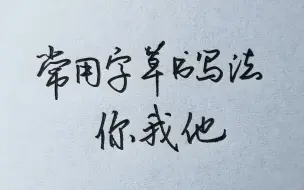 常用字草书写法
你我他